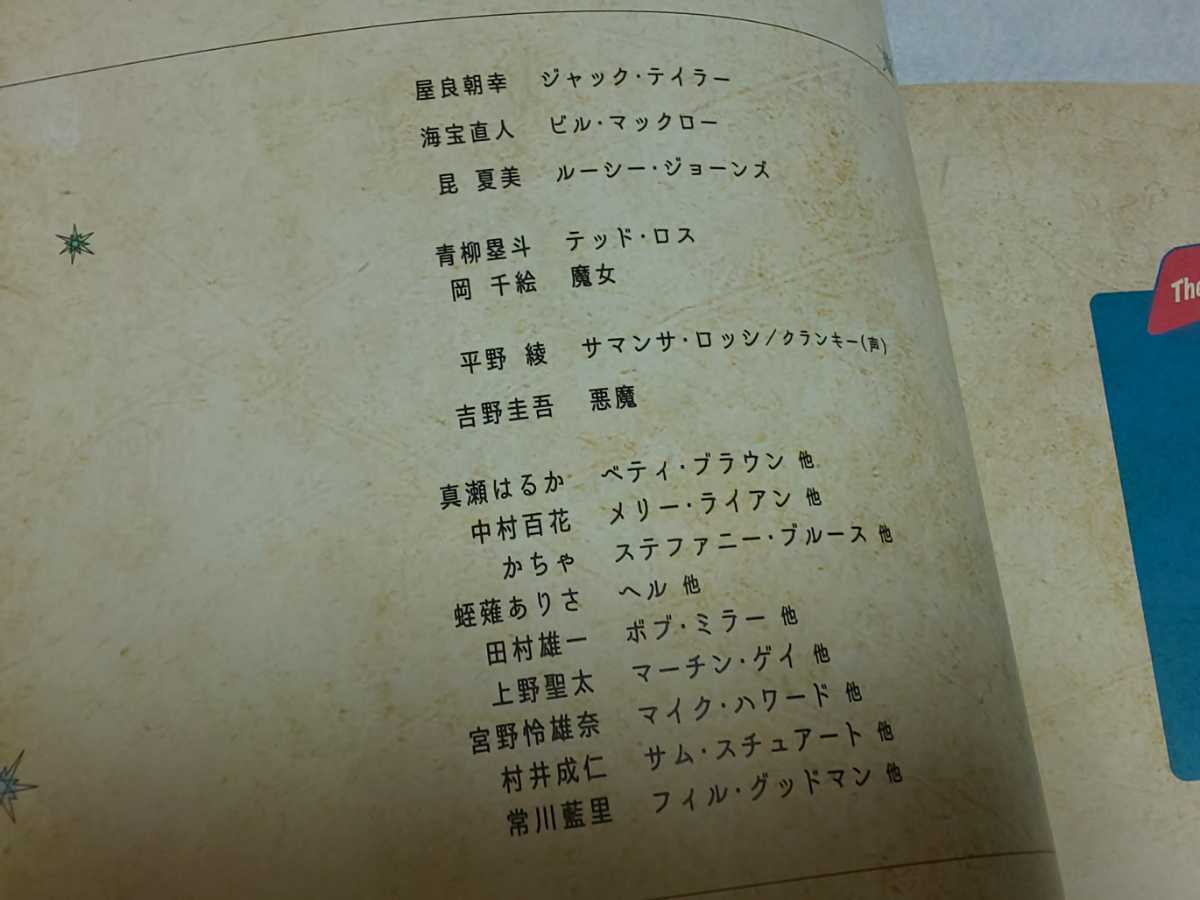 屋良朝幸 ジャック・テイラー
海宝直人 ビル・マックロー
昆 夏美 ルーシー・ジョーンズ
青柳塁斗 テッド・ロス
岡 千絵 魔女
平野 綾 サマンサ・ロッシ/クランキー(声)
吉野圭吾 悪魔
真瀬はるか ベティ・ブラウン 他
中村百花 メリー・ライアン 他
かちゃ ステファニー・ブルース 他
蛭薙ありさ ヘル 他
田村雄一 ボブ・ミラー 他
上野聖太 マーチン・ゲイ 他
宮野怜雄奈 マイク・ハワード 他
村井成仁 サム・スチュアート 他
常川藍里 フィル・グッドマン 他
The